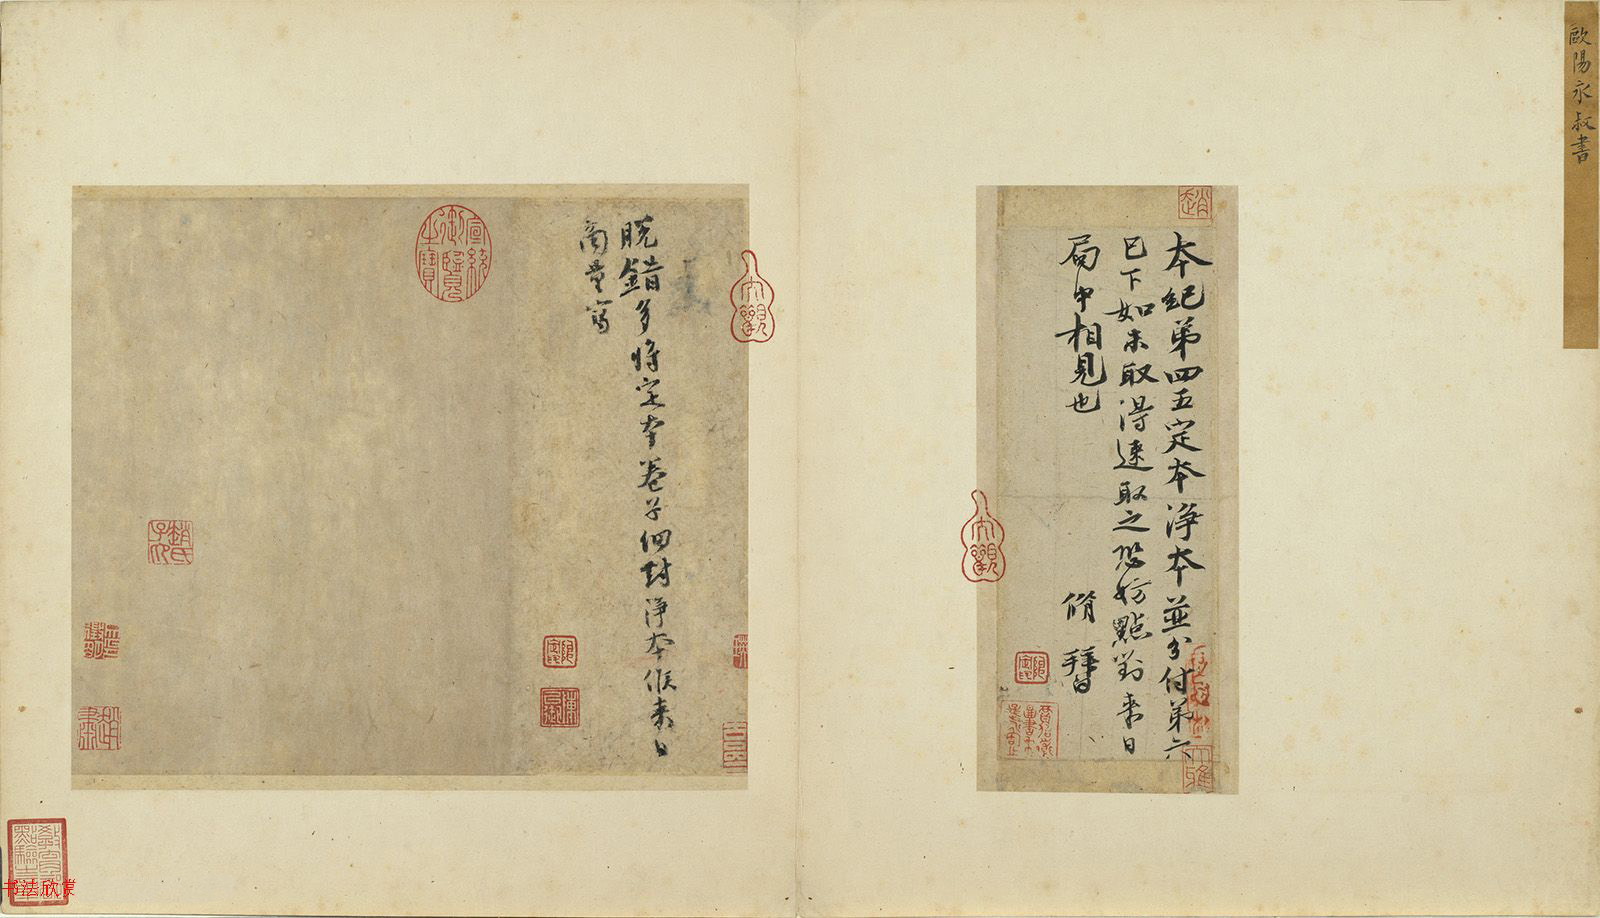 歐陽永叔書
本紀第四五定本淨本並分付第六
已下如未取得速取之恐妨點對來日
局中相見也
脩 拜
脱錯多將定本卷子細對淨本俟來日
商量寫
宣統御覽之寶
書法欣赏